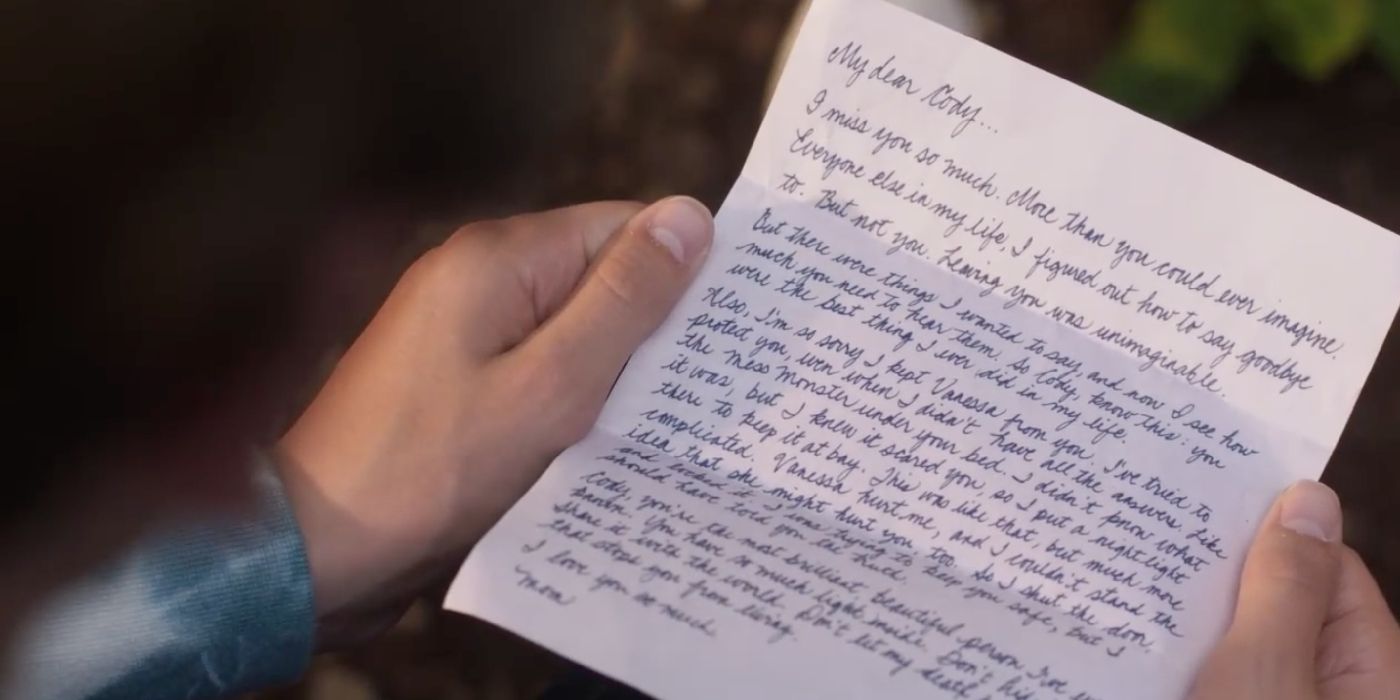 My dear Cody...
I miss you so much. More than you could ever imagine.
Everyone else in my life, I figured out how to say goodbye
to. But not you. Leaving you was unimaginable.
But there were things I wanted to say, and now I see how
much you need to hear them. So Cody, know this: you
were the best thing I ever did in my life.
Also, I'm so sorry I kept Vanessa from you. I've tried to
protect you, even when I didn't have all the answers. Like
the Mess Monster under your bed. I didn't know what
it was, but I knew it scared you, so I put a night light
there to keep it at bay. This was like that, but much more
complicated. Vanessa hurt me, and I couldn't stand the
idea that she might hurt you too. So I shut the door,
and locked it. I was trying to keep you safe, but I
should have told you the truth.
Cody, you're the most brilliant, beautiful person I've
known. You have so much light inside. Don't
share it with the world. Don't let my death
that stops you from living
I love you so much.
Mom